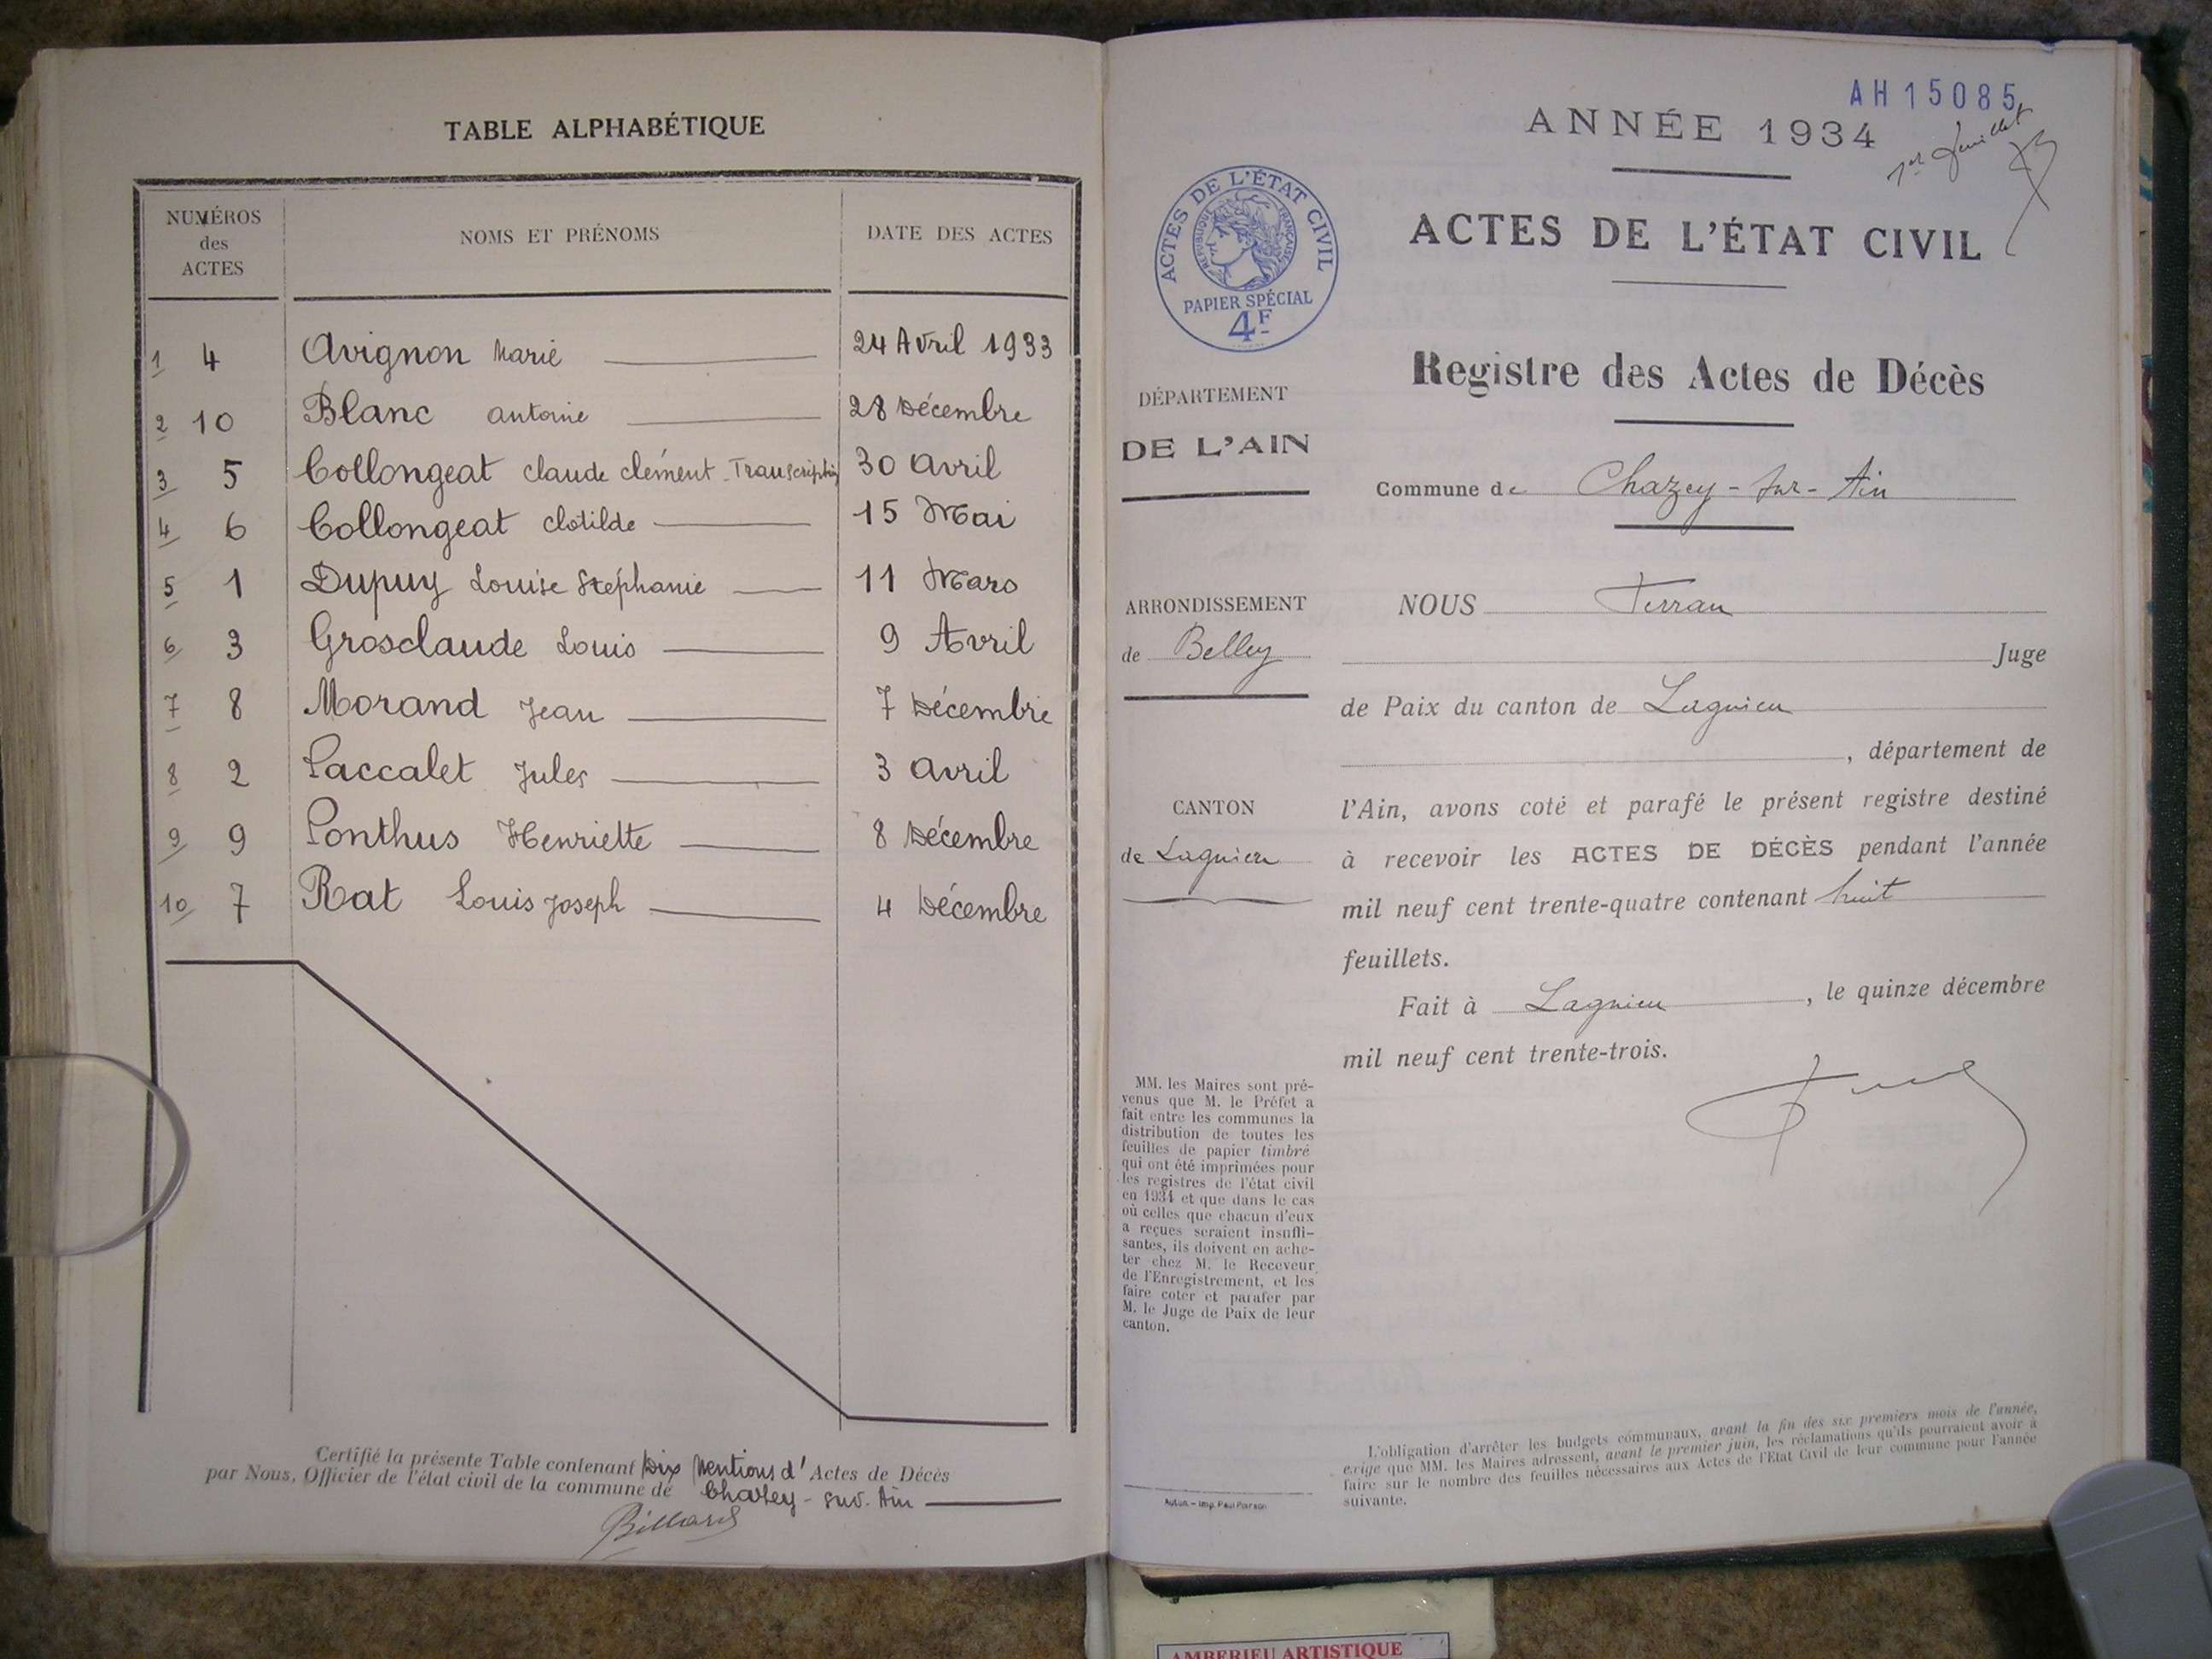 TABLE ALPHABÉTIQUE
NUMÉROS des ACTES NOMS ET PRÉNOMS DATE DES ACTES
1 4 Avignon Marie 24 Avril 1933
2 10 Blanc antoine 28 Décembre
3 5 Collongeat claude clément - Transcription 30 avril
4 6 Collongeat clotilde 15 Mai
5 1 Dupuy Louise Stéphanie 11 Mars
6 3 Grosclaude Louis 9 Avril
7 8 Morand Jean 7 Décembre
8 2 Paccalet Jules 3 avril
9 9 Ponthus Henriette 8 Décembre
10 7 Rat Louis Joseph 4 Décembre
Certifié la présente Table contenant Dix Mentions d' Actes de Décès
par Nous, Officier de l'état civil de la commune de Chazey-sur-Ain
Billard
AH15085
1er feuillet
ANNÉE 1934
ACTES DE L'ÉTAT CIVIL
ACTES DE L'ÉTAT CIVIL
RÉPUBLIQUE FRANÇAISE
PAPIER SPÉCIAL
4F
Registre des Actes de Décès
DÉPARTEMENT
DE L'AIN
Commune de Chazey-sur-Ain
ARRONDISSEMENT
de Belley
CANTON
de Lagnieu
NOUS Ferran
Juge
de Paix du canton de Lagnieu
, département de
l'Ain, avons coté et parafé le présent registre destiné
à recevoir les ACTES DE DÉCÈS pendant l'année
mil neuf cent trente-quatre contenant huit
feuillets.
Fait à Lagnieu, le quinze décembre
mil neuf cent trente-trois.
MM. les Maires sont pré-
venus que M. le Préfet a
fait entre les communes la
distribution de toutes les
feuilles de papier timbré
qui ont été imprimées pour
les registres de l'état civil
en 1934 et que dans le cas
où celles que chacun d'eux
a reçues seraient insuffi-
santes, ils doivent en ache-
ter chez M. le Receveur
de l'Enregistrement, et les
faire coter et parafer par
M. le Juge de Paix de leur
canton.
Autun. - Imp. Paul Poirson
L'obligation d'arrêter les budgets communaux, avant la fin des six premiers mois de l'année,
exige que MM. les Maires adressent, avant le premier juin, les réclamations qu'ils pourraient avoir à
faire sur le nombre des feuilles nécessaires aux Actes de l'Etat Civil de leur commune pour l'année
suivante.
AMBERIEU ARTISTIQUE